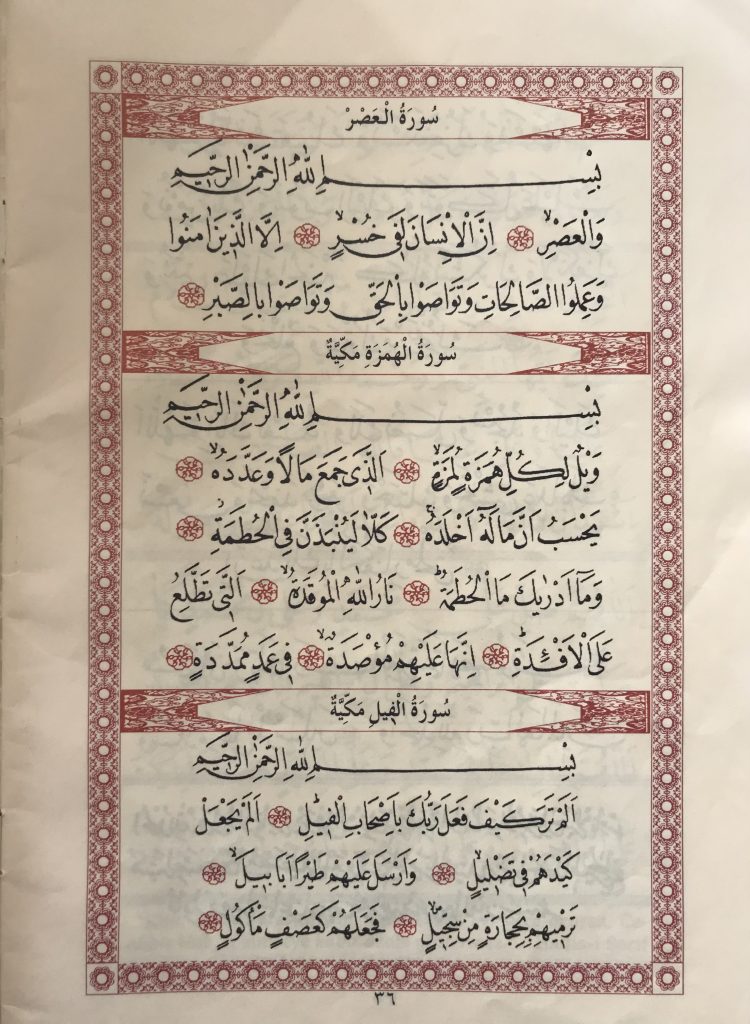 سُورَةُ الْعَصْرِ
بِسْمِ اللّٰهِ الرَّحْمٰنِ الرَّحِيمِ
وَالْعَصْرِۙ ۞ اِنَّ الْاِنْسَانَ لَفٖي خُسْرٍۙ ۞ اِلَّا الَّذٖينَ اٰمَنُوا
وَعَمِلُوا الصَّالِحَاتِ وَتَوَاصَوْا بِالْحَقِّ وَتَوَاصَوْا بِالصَّبْرِ ۞
سُورَةُ الْهُمَزَةِ مَكِّيَّةٌ
بِسْمِ اللّٰهِ الرَّحْمٰنِ الرَّحِيمِ
وَيْلٌ لِكُلِّ هُمَزَةٍ لُمَزَةٍۙ ۞ اَلَّذٖي جَمَعَ مَالًا وَعَدَّدَهُۙ ۞
يَحْسَبُ اَنَّ مَالَهُٓ اَخْلَدَهُۚ ۞ كَلَّا لَيُنْبَذَنَّ فِي الْحُطَمَةِۘ ۞
وَمَٓا اَدْرٰيكَ مَا الْحُطَمَةُؕ ۞ نَارُ اللّٰهِ الْمُوقَدَةُۙ ۞ اَلَّتٖي تَطَّلِعُ
عَلَى الْاَفْـِٔدَةِؕ ۞ اِنَّهَا عَلَيْهِمْ مُؤْصَدَةٌۙ ۞ فٖي عَمَدٍ مُمَدَّدَةٍ ۞
سُورَةُ الْفٖيلِ مَكِّيَّةٌ
بِسْمِ اللّٰهِ الرَّحْمٰنِ الرَّحِيمِ
اَلَمْ تَرَ كَيْفَ فَعَلَ رَبُّكَ بِاَصْحَابِ الْفٖيلِؕ ۞ اَلَمْ يَجْعَلْ
كَيْدَهُمْ فٖي تَضْلٖيلٍ ۞ وَاَرْسَلَ عَلَيْهِمْ طَيْرًا اَبَابٖيلَۙ ۞
تَرْمٖيهِمْ بِحِجَارَةٍ مِنْ سِجّٖيلٍۙ ۞ فَجَعَلَهُمْ كَعَصْفٍ مَأْكُولٍ ۞
٣٦